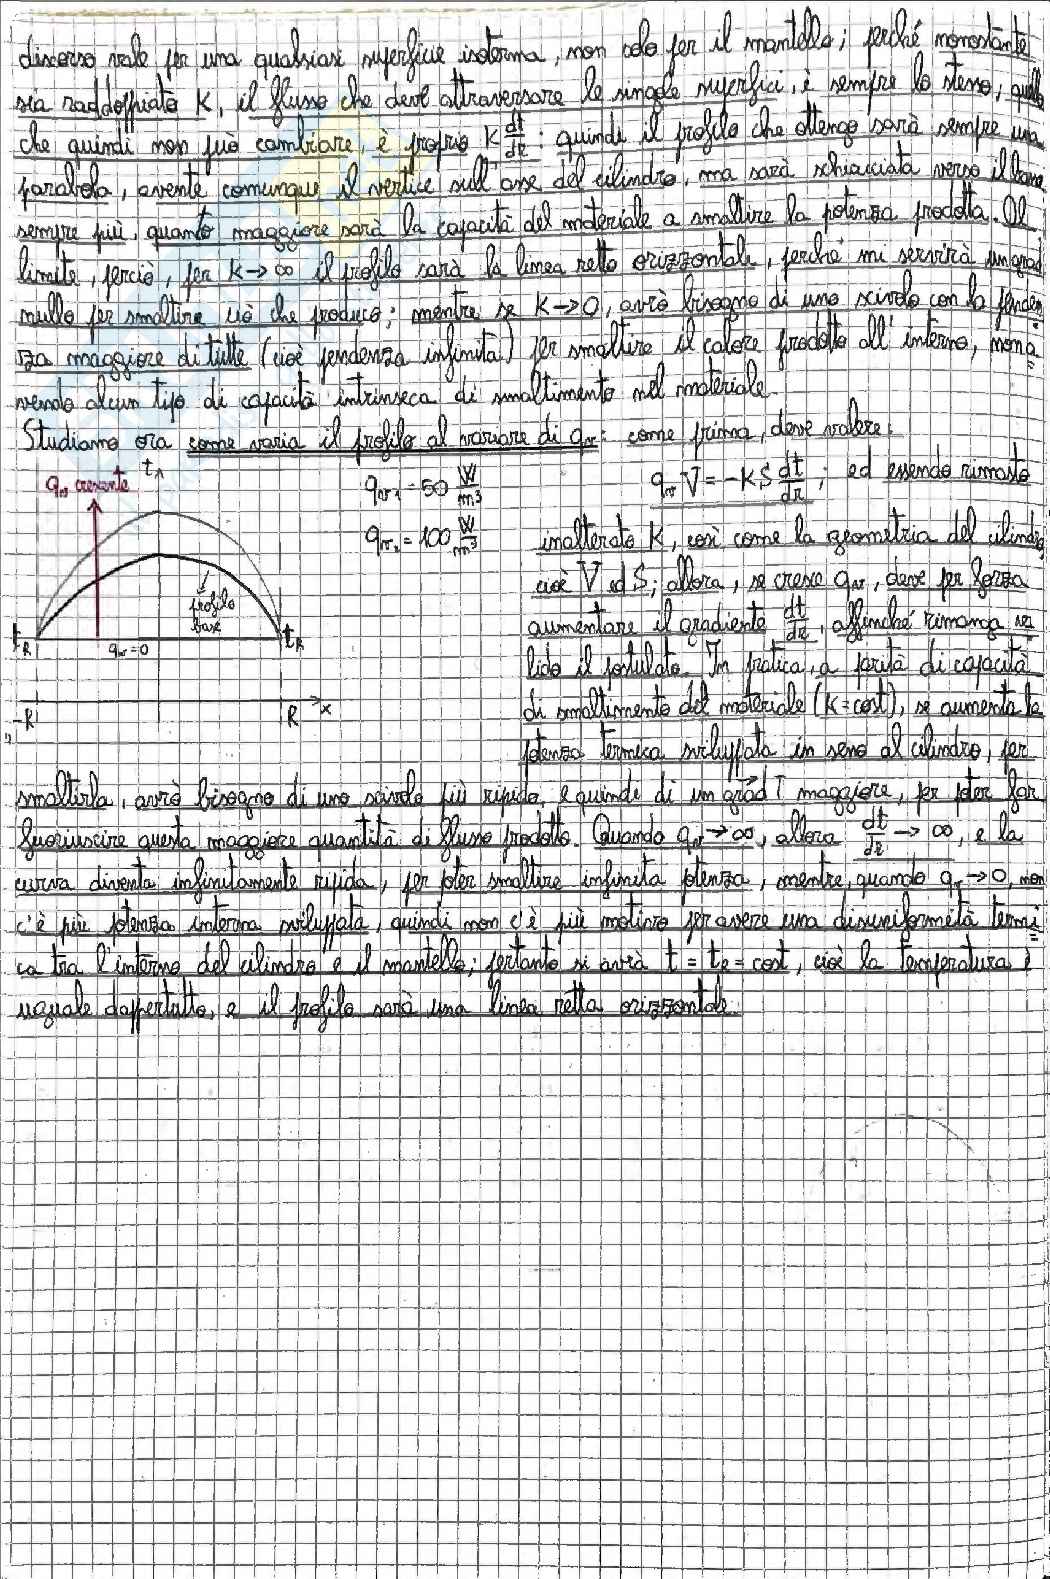 discorso vale per una qualsiasi superficie isoterma, non solo per il mantello; perché nonostante
sia raddoppiato K, il flusso che deve attraversare le singole superfici, è sempre lo stesso, quello
che quindi non può cambiare, è proprio K dt/dr: quindi il profilo che ottengo sarà sempre una
parabola, avente comunque il vertice sull'asse del cilindro, ma sarà schiacciata verso il basso
sempre più, quanto maggiore sarà la capacità del materiale a smaltire la potenza prodotta. Al
limite, perciò, per K→∞ il profilo sarà la linea retta orizzontale, perché mi servirà un grad
nullo per smaltire ciò che produco; mentre se K→0, avrò bisogno di uno scivolo con la penden
za maggiore di tutte (cioè pendenza infinita) per smaltire il calore prodotto all'interno, non a
vendo alcun tipo di capacità intrinseca di smaltimento nel materiale
Studiamo ora come varia il profilo al variare di qv: come prima, deve valere:
t
qv crescente
qv1 = 50 W/m³
qv V = -KS dt/dr ; ed essendo rimasto
qv2 = 100 W/m³
inalterato K, così come la geometria del cilindro,
cioè V ed S; allora, se cresce qv, deve per forza
profilo
base
aumentare il gradiente dt/dr, affinché rimanga va
tR
tR
qv=0
lido il postulato. In pratica, a parità di capacità
di smaltimento del materiale (K=cost), se aumenta la
-R
R
x
potenza termica sviluppata in seno al cilindro, per
smaltirla, avrò bisogno di uno scivolo più ripido, e quindi di un grad T maggiore, per poter far
fuoriuscire questa maggiore quantità di flusso prodotto. Quando qv→∞, allora dt/dr→∞, e la
curva diventa infinitamente ripida, per poter smaltire infinita potenza, mentre, quando qv→0, non
c'è più potenza interna sviluppata, quindi non c'è più motivo per avere una disuniformità termi
ca tra l'interno del cilindro e il mantello; pertanto si avrà t = tR = cost, cioè la temperatura è
uguale dappertutto, e il profilo sarà una linea retta orizzontale.